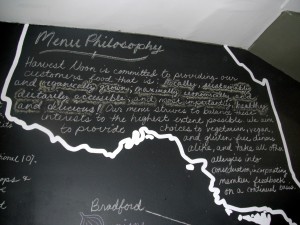 Menu Philosophy
Harvest Noon is committed to providing our
customers food that is: locally, sustainably
and organically grown, minimally
dietarily accessible, and most importantly, healthy
(and delicious)! Our menu strives to balance
interests to the highest extent possible. We aim
to provide choices to vegetarian, vegan,
and gluten-free diners
alike, and take all other
allergies into
consideration, incorporating
member feedback
on a continual basis.
Bradford